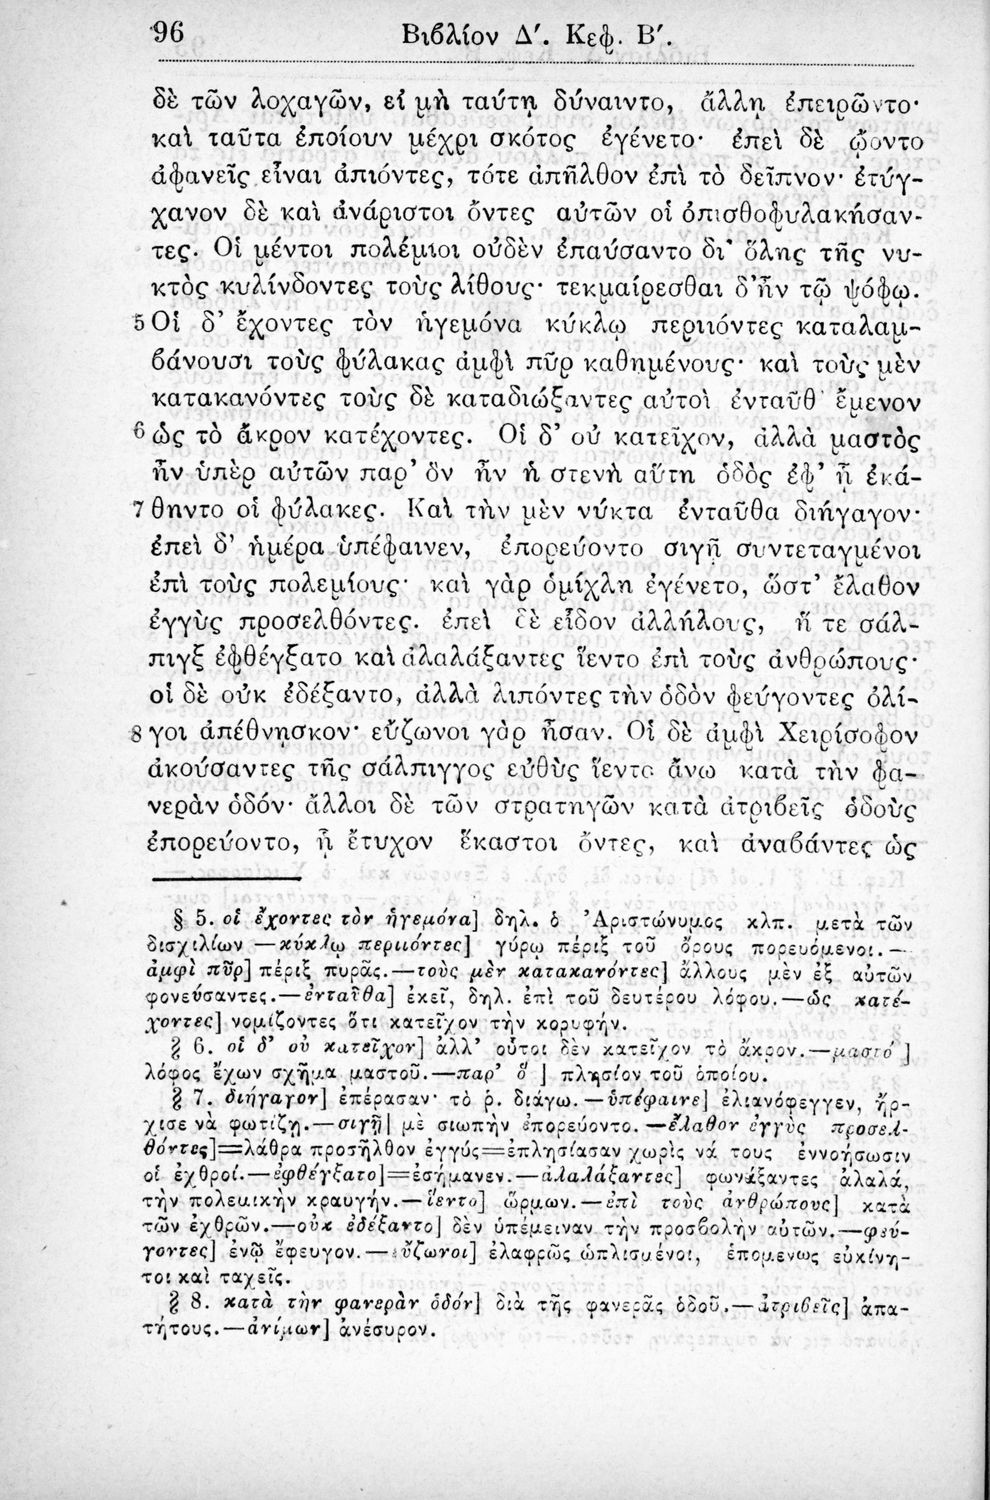 96 Βιβλίον Δ′. Κεφ. Β′.
δὲ τῶν λοχαγῶν, εἰ μὴ ταύτῃ δύναιντο, ἄλλῃ ἐπειρῶντο·
καὶ ταῦτα ἐποίουν μέχρι σκότος ἐγένετο· ἐπεὶ δὲ ᾤοντο
ἀφανεῖς εἶναι ἀπιόντες, τότε ἀπῆλθον ἐπὶ τὸ δεῖπνον· ἐτύγ-
χανον δὲ καὶ ἀνάριστοι ὄντες αὐτῶν οἱ ὀπισθοφυλακήσαν-
τες. Οἱ μέντοι πολέμιοι οὐδὲν ἐπαύσαντο δι' ὅλης τῆς νυ-
κτὸς κυλίνδοντες τοὺς λίθους· τεκμαίρεσθαι δ' ἦν τῷ ψόφῳ.
5 Οἱ δ' ἔχοντες τὸν ἡγεμόνα κύκλῳ περιιόντες καταλαμ-
βάνουσι τοὺς φύλακας ἀμφὶ πῦρ καθημένους· καὶ τοὺς μὲν
κατακανόντες τοὺς δὲ καταδιώξαντες αὐτοὶ ἐνταῦθ' ἔμενον
6 ὡς τὸ ἄκρον κατέχοντες. Οἱ δ' οὐ κατεῖχον, ἀλλὰ μαστὸς
ἦν ὑπὲρ αὐτῶν παρ' ὃν ἦν ἡ στενὴ αὕτη ὁδὸς ἐφ' ᾗ ἐκά-
7 θηντο οἱ φύλακες. Καὶ τὴν μὲν νύκτα ἐνταῦθα διήγαγον·
ἐπεὶ δ' ἡμέρα ὑπέφαινεν, ἐπορεύοντο σιγῇ συντεταγμένοι
ἐπὶ τοὺς πολεμίους· καὶ γὰρ ὁμίχλη ἐγένετο, ὥστ' ἔλαθον
ἐγγὺς προσελθόντες. ἐπεὶ δὲ εἶδον ἀλλήλους, ἥ τε σάλ-
πιγξ ἐφθέγξατο καὶ ἀλαλάξαντες ἵεντο ἐπὶ τοὺς ἀνθρώπους·
οἱ δὲ οὐκ ἐδέξαντο, ἀλλὰ λιπόντες τὴν ὁδὸν φεύγοντες ὀλί-
8 γοι ἀπέθνησκον· εὔζωνοι γὰρ ἦσαν. Οἱ δὲ ἀμφὶ Χειρίσοφον
ἀκούσαντες τῆς σάλπιγγος εὐθὺς ἵεντο ἄνω κατὰ τὴν φα-
νερὰν ὁδόν· ἄλλοι δὲ τῶν στρατηγῶν κατὰ ἀτριβεῖς ὁδοὺς
ἐπορεύοντο, ᾗ ἔτυχον ἕκαστοι ὄντες, καὶ ἀναβάντες ὡς
§ 5. οἱ ἔχοντες τὸν ἡγεμόνα] δηλ. ὁ Ἀριστώνυμος κλπ. μετὰ τῶν
δισχιλίων — κύκλῳ περιιόντες] γύρῳ πέριξ τοῦ ὄρους πορευόμενοι. —
ἀμφὶ πῦρ] πέριξ πυρᾶς. — τοὺς μὲν κατακανόντες] ἄλλους μὲν ἐξ αὐτῶν
φονεύσαντες. — ἐνταῦθα] ἐκεῖ, δηλ. ἐπὶ τοῦ δευτέρου λόφου. — ὡς κατέ-
χοντες] νομίζοντες ὅτι κατεῖχον τὴν κορυφήν.
§ 6. οἱ δ' οὐ κατεῖχον] ἀλλ' οὗτοι δὲν κατεῖχον τὸ ἄκρον. — μαστό ]
λόφος ἔχων σχῆμα μαστοῦ. — παρ' ὃ ] πλησίον τοῦ ὁποίου.
§ 7. διήγαγον] ἐπέρασαν· τὸ ῥ. διάγω. — ὑπέφαινε] ἐλιανόφεγγεν, ἤρ-
χισε νὰ φωτίζῃ. — σιγῇ] μὲ σιωπὴν ἐπορεύοντο. — ἔλαθον ἐγγὺς προσελ-
θόντες]=λάθρα προσῆλθον ἐγγύς=ἐπλησίασαν χωρὶς νά τους ἐννοήσωσιν
οἱ ἐχθροί. — ἐφθέγξατο]=ἐσήμανεν. — ἀλαλάξαντες] φωνάξαντες ἀλαλά,
τὴν πολεμικὴν κραυγήν. — ἵεντο] ὥρμων. — ἐπὶ τοὺς ἀνθρώπους] κατὰ
τῶν ἐχθρῶν. — οὐκ ἐδέξαντο] δὲν ὑπέμειναν τὴν προσβολὴν αὐτῶν. — φεύ-
γοντες] ἐνῷ ἔφευγον. — εὔζωνοι] ἐλαφρῶς ὡπλισμένοι, ἑπομένως εὐκίνη-
τοι καὶ ταχεῖς.
§ 8. κατὰ τὴν φανερὰν ὁδόν] διὰ τῆς φανερᾶς ὁδοῦ. — ἀτριβεῖς] ἀπα-
τήτους. — ἀνίμων] ἀνέσυρον.